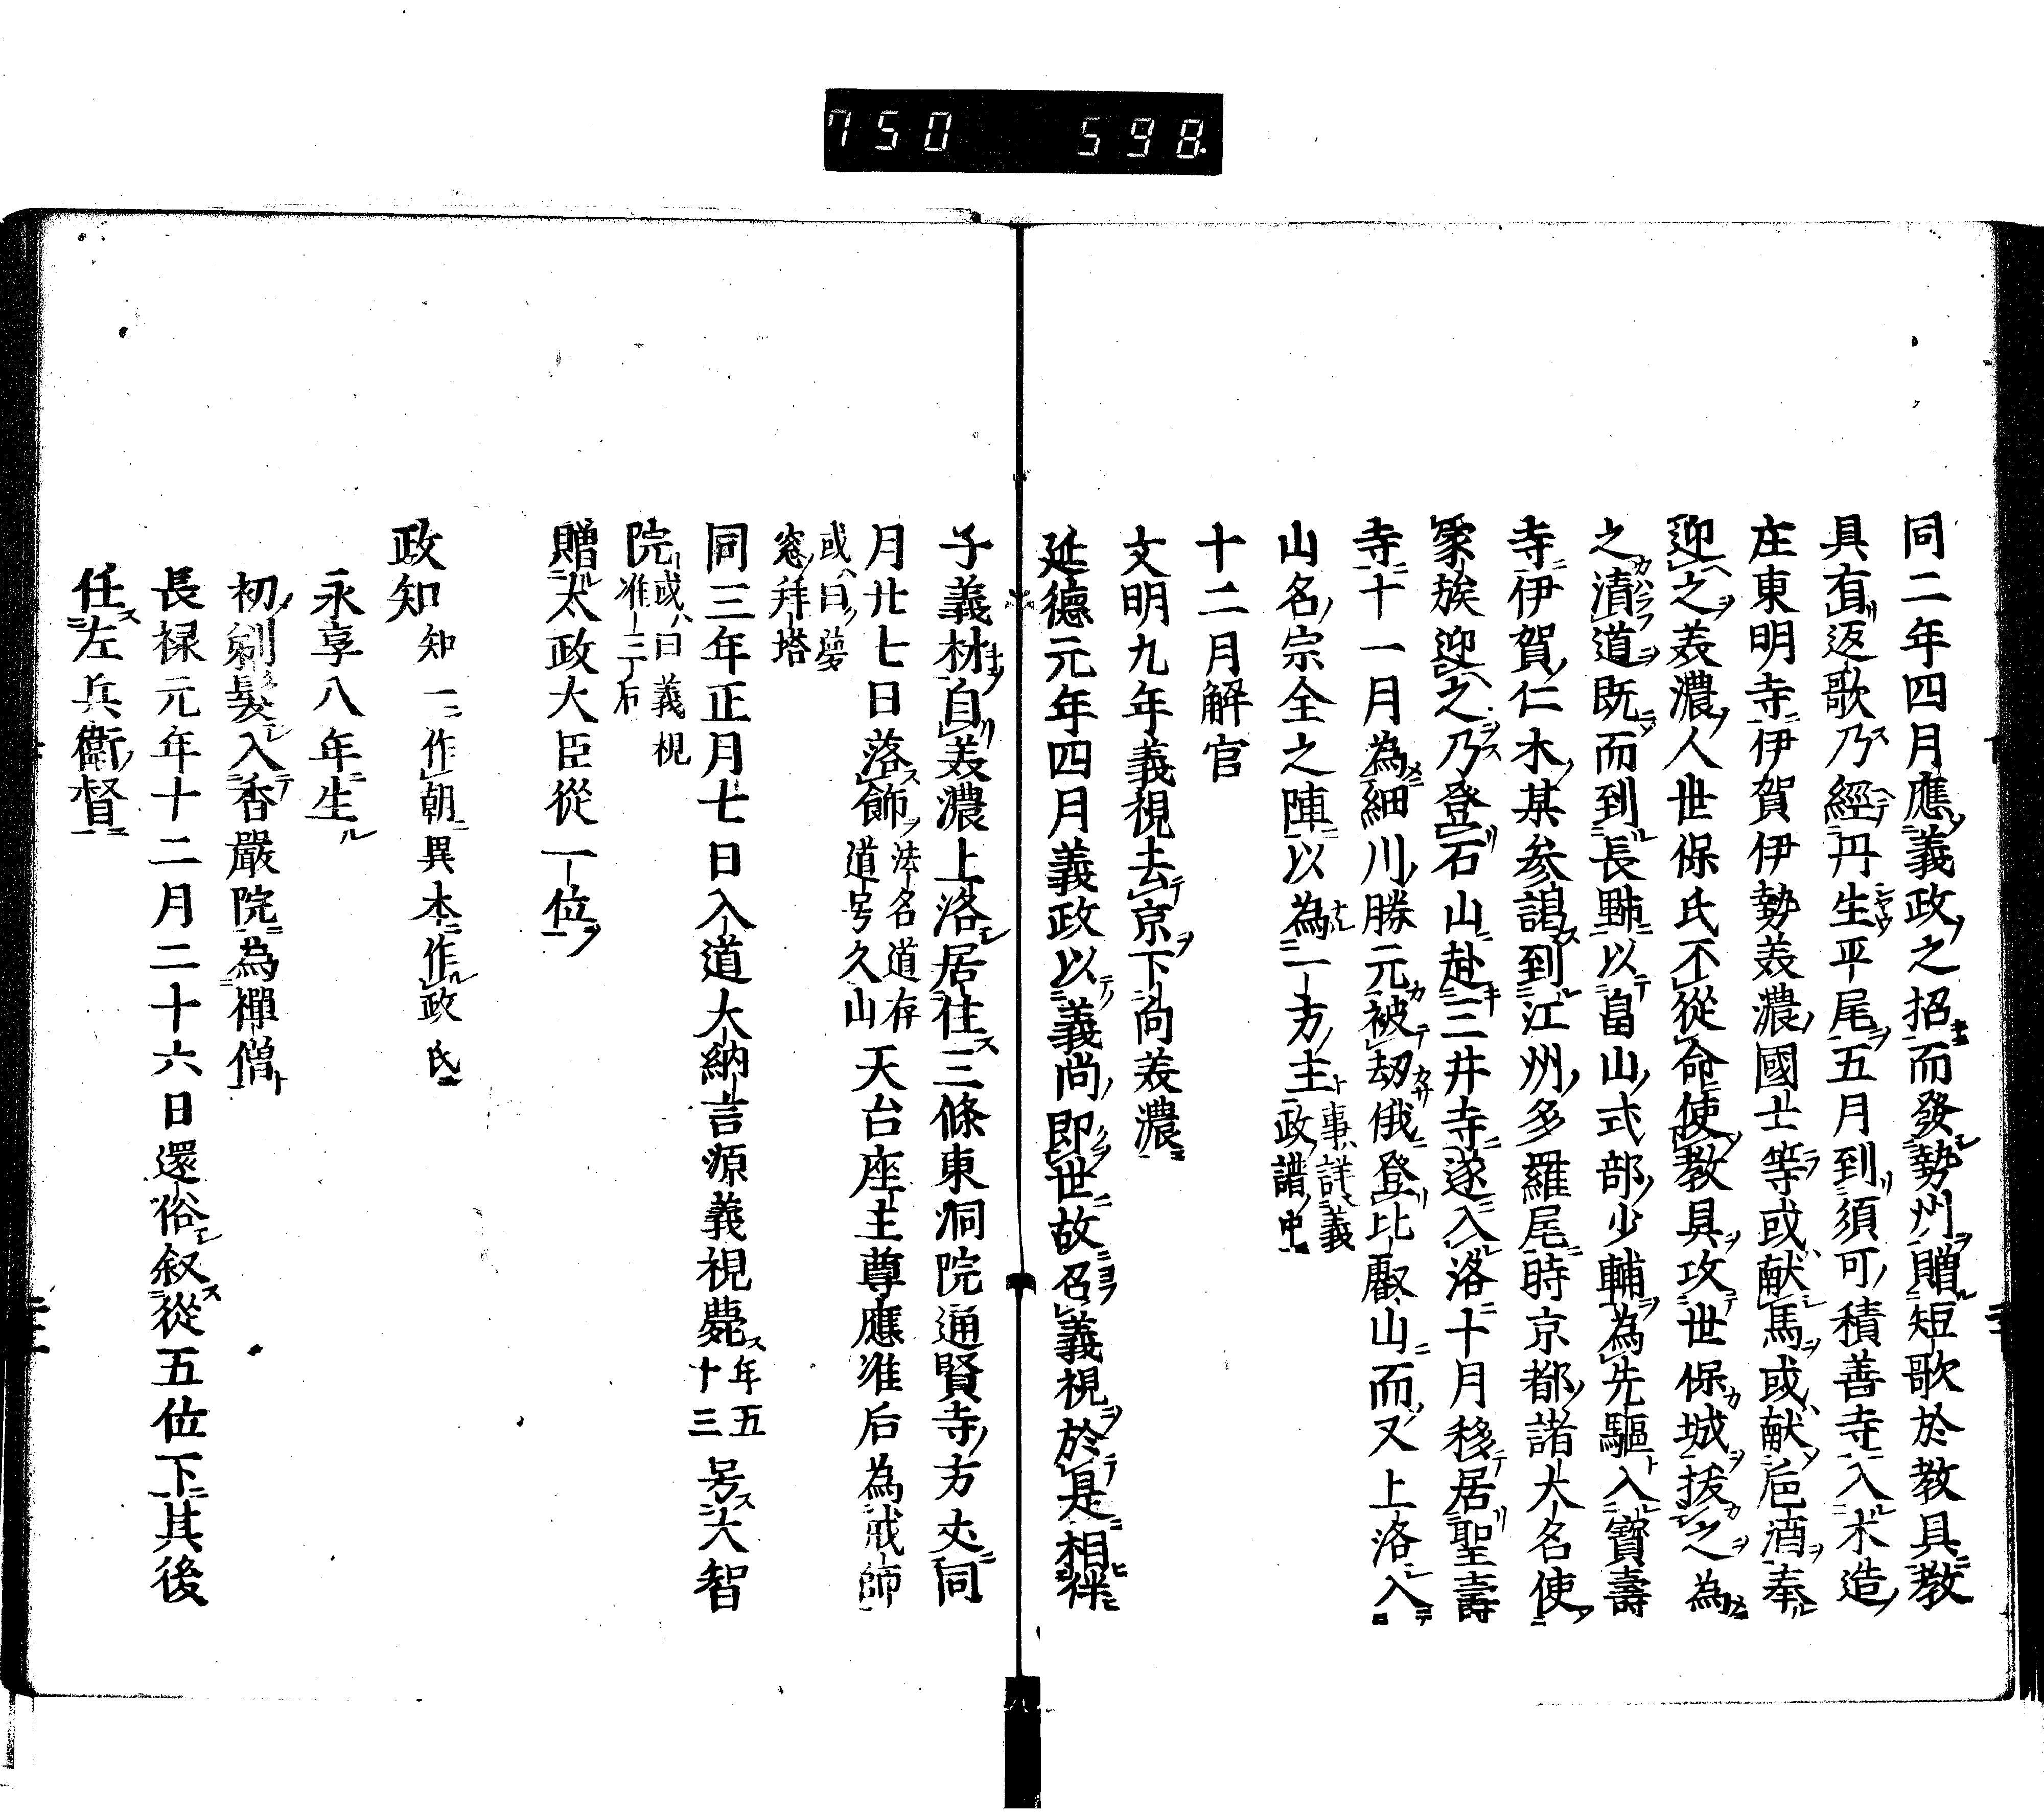 750 598
同二年四月應義政之招而發勢州贈短歌於教具教
具有返歌乃經丹生平尾五月到須可積善寺入木造
庄東明寺伊賀伊勢美濃國士等或献馬或献巵酒奉
迎之美濃人世保氏不從命使教具攻世保城抜之為
之清道既而到長野以畠山式部少輔為先驅入寶壽
寺伊賀仁木某参謁到江州多羅尾時京都諸大名使
家族迎之乃登石山赴三井寺遂入洛十月移居聖壽
寺十一月為細川勝元被劫俄登比叡山而又上洛入
山名宗全之陣以為一方主事詳義
政譜中
十二月解官
文明九年義視去京下向美濃
延德元年四月義政以義尚即世故召義視於是相伴
子義材自美濃上洛居住三條東洞院通賢寺方丈同
月廿七日落飾法名道存
道号久山天台座主尊應准后為戒師
或曰夢
窓拜塔
同三年正月七日入道大納言源義視薨年五
十三号大智
院或曰義視
准三后
贈太政大臣從一位
政知知一作朝異本作政氏
永享八年生
初剃髮入香嚴院為禪僧
長禄元年十二月二十六日還俗叙從五位下其後
任左兵衛督